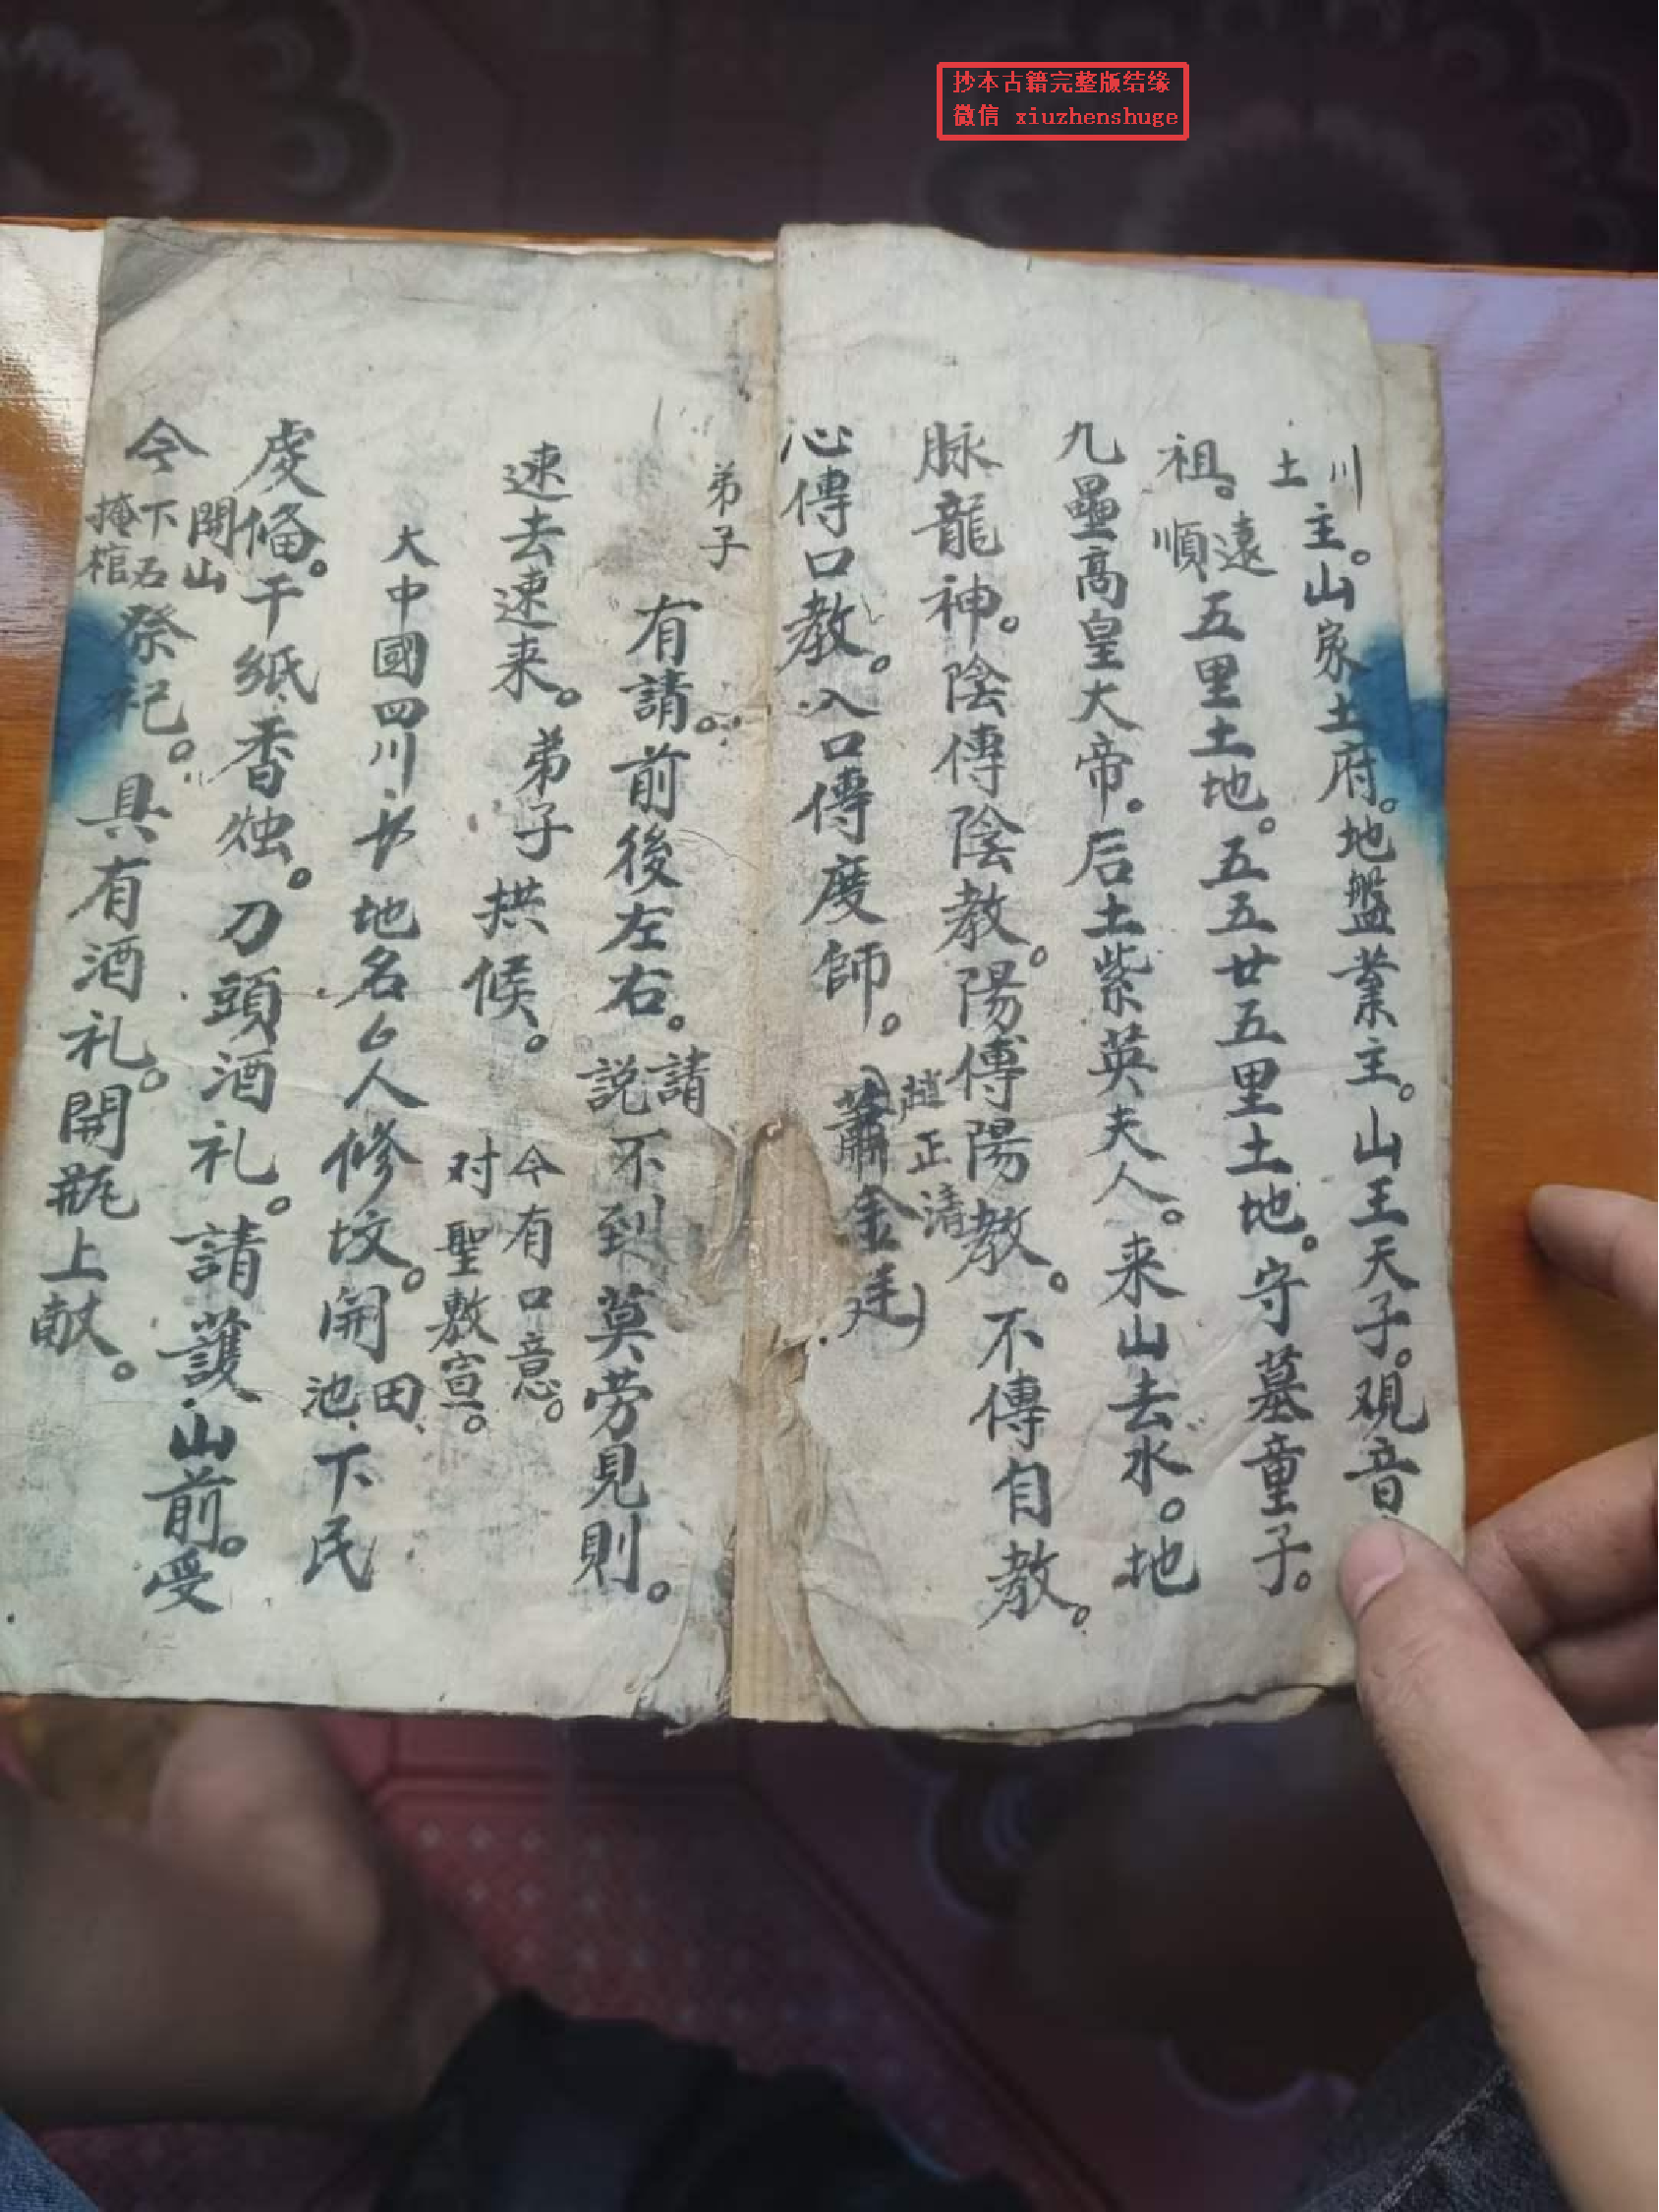 抄本古籍完整版结缘
微信 xiuzhenshuge
川
土
主。山家土府。地盤業主。山王天子。观音
祖。遠
順
五里土地。五五廿五里土地。守墓童子。
九壘高皇大帝。后土紫英夫人。来山去水。地
脉龍神。陰傳陰教。陽傳陽教。不傳自教。
心傳口教。入口傳度師。
趙正清
蕭金廷
弟子
有請。前後左右。請
説
不到莫劳見則。
速去速来。弟子拱候。
今有口意。
对聖敷宣。
大中國四川地名人修坟。開田
池
下民
虔俻。千紙香烛。刀頭酒礼。請護山前。受
今開山
下石
掩棺
祭祀。具有酒礼。開瓶上献。